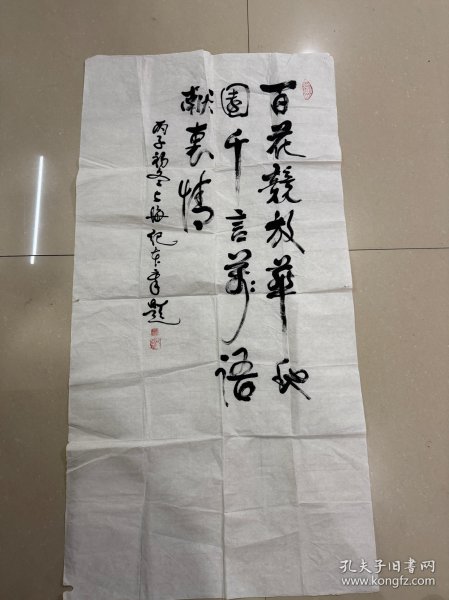 百花競放華地
園千言萬語
献衷情
丙子初冬上海纪在年題
孔夫子旧书网
www.kongfz.com